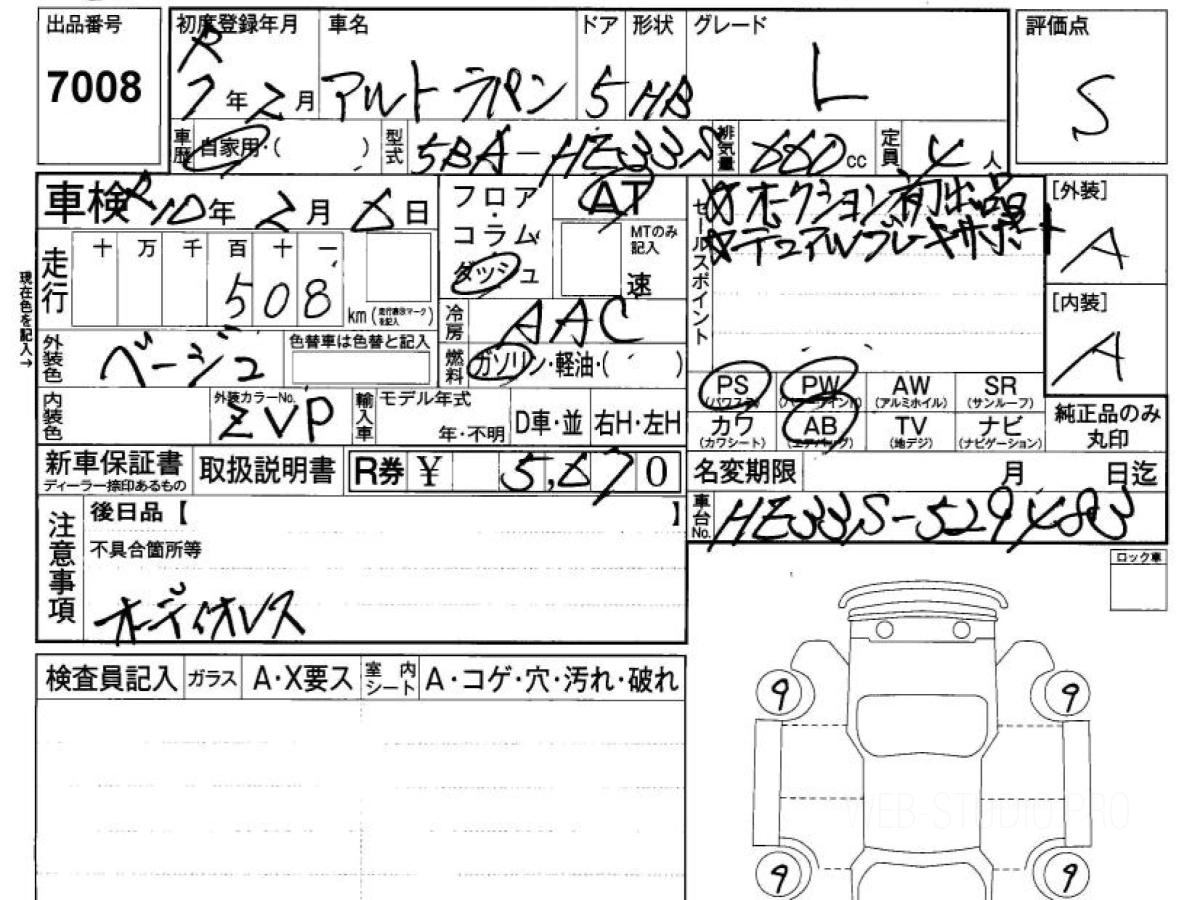 出品番号
7008
初度登録年月
R
7年2月
車名
アルトラパン
ドア
5
形状
HB
グレード
L
評価点
S
車歴
自家用・( )
型式
5BA-HE33S
排気量
660cc
定員
4人
車検 R10年2月6日
走行
十 万 千 百 十 一
508
km(走行表示マークを記入)
現在色を記入→
フロア・コラム
ダッシュ
AT
MTのみ記入
速
セールスポイント
☆オークション初出品
☆デュアルブレーキサポート
[外装]
A
[内装]
A
外装色
ベージュ
色替車は色替と記入
冷房
AAC
燃料
ガソリン・軽油・( )
内装色
外装カラーNo.
ZVP
輸入車
モデル年式
年・不明
D車・並
右H・左H
PS
(パワステ)
PW
(パワーウインド)
AW
(アルミホイル)
SR
(サンルーフ)
カワ
(カワシート)
AB
(エアバッグ)
TV
(地デジ)
ナビ
(ナビゲーション)
純正品のみ
丸印
新車保証書
ディーラー捺印あるもの
取扱説明書
R券 ¥ 5,670
名変期限
月 日迄
車台No.
HE33S-529483
注意事項
後日品【 】
不具合箇所等
オーディオレス
ロック車
検査員記入
ガラス
A・X要ス
室内シート
A・コゲ・穴・汚れ・破れ
9
9
9
9
WEB-STUDIO.PRO